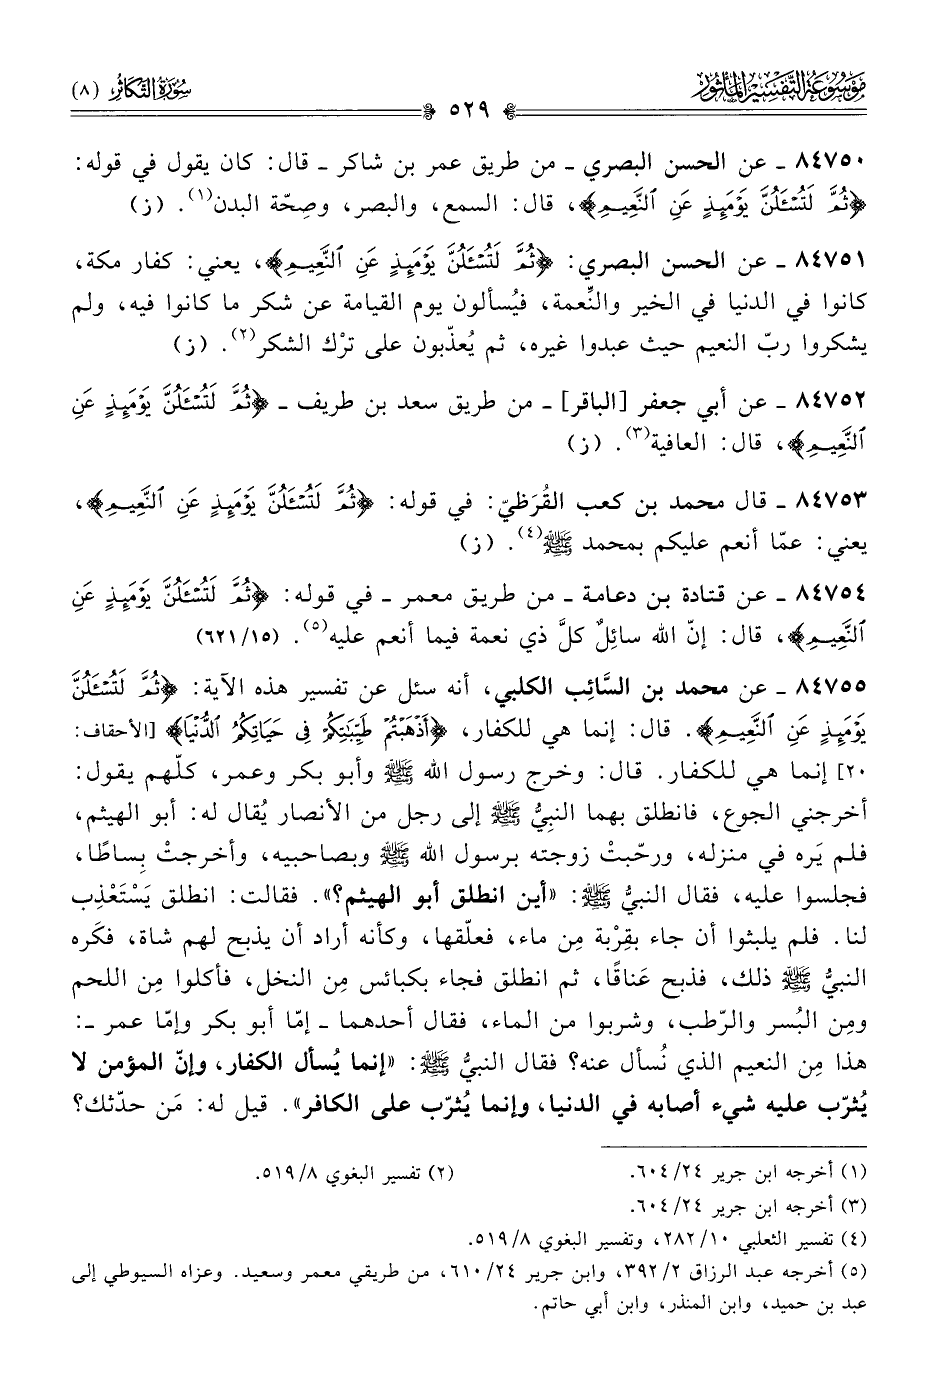 موسوعة التفسير المأثور
سورة التكاثر (٨)
٥٢٩
٨٤٧٥٠ ـ عن الحسن البصري ـ من طريق عمر بن شاكر ـ قال: كان يقول في قوله:
﴿ثُمَّ لَتُسْـَٔلُنَّ يَوْمَئِذٍ عَنِ ٱلنَّعِيمِ﴾، قال: السمع، والبصر، وصِحّة البدن(١). (ز)
٨٤٧٥١ ـ عن الحسن البصري: ﴿ثُمَّ لَتُسْـَٔلُنَّ يَوْمَئِذٍ عَنِ ٱلنَّعِيمِ﴾، يعني: كفار مكة،
كانوا في الدنيا في الخير والنِّعمة، فيُسألون يوم القيامة عن شكر ما كانوا فيه، ولم
يشكروا ربّ النعيم حيث عبدوا غيره، ثم يُعذّبون على ترْك الشكر(٢). (ز)
٨٤٧٥٢ ـ عن أبي جعفر [الباقر] ـ من طريق سعد بن طريف ـ ﴿ثُمَّ لَتُسْـَٔلُنَّ يَوْمَئِذٍ عَنِ
ٱلنَّعِيمِ﴾، قال: العافية(٣). (ز)
٨٤٧٥٣ ـ قال محمد بن كعب القُرَظيّ: في قوله: ﴿ثُمَّ لَتُسْـَٔلُنَّ يَوْمَئِذٍ عَنِ ٱلنَّعِيمِ﴾،
يعني: عمّا أنعم عليكم بمحمد ﷺ(٤). (ز)
٨٤٧٥٤ ـ عن قتادة بن دعامة ـ من طريق معمر ـ في قوله: ﴿ثُمَّ لَتُسْـَٔلُنَّ يَوْمَئِذٍ عَنِ
ٱلنَّعِيمِ﴾، قال: إنّ الله سائِلٌ كلَّ ذي نعمة فيما أنعم عليه(٥). (١٥/ ٦٢١)
٨٤٧٥٥ ـ عن محمد بن السَّائِب الكلبي، أنه سئل عن تفسير هذه الآية: ﴿ثُمَّ لَتُسْـَٔلُنَّ
يَوْمَئِذٍ عَنِ ٱلنَّعِيمِ﴾. قال: إنما هي للكفار، ﴿أَذْهَبْتُمْ طَيِّبَٰتِكُمْ فِى حَيَاتِكُمُ ٱلدُّنْيَا﴾ [الأحقاف:
٢٠] إنما هي للكفار. قال: وخرج رسول الله ﷺ وأبو بكر وعمر، كلّهم يقول:
أخرجني الجوع، فانطلق بهما النبيُّ ﷺ إلى رجل من الأنصار يُقال له: أبو الهيثم،
فلم يَره في منزله، ورحّبتْ زوجته برسول الله ﷺ وبصاحبيه، وأخرجتْ بِساطًا،
فجلسوا عليه، فقال النبيُّ ﷺ: «أين انطلق أبو الهيثم؟». فقالت: انطلق يَسْتَعْذِب
لنا. فلم يلبثوا أن جاء بقِرْبة مِن ماء، فعلّقها، وكأنه أراد أن يذبح لهم شاة، فكَره
النبيُّ ﷺ ذلك، فذبح عَناقًا، ثم انطلق فجاء بكبائس مِن النخل، فأكلوا مِن اللحم
ومِن البُسر والرّطب، وشربوا من الماء، فقال أحدهما ـ إمّا أبو بكر وإمّا عمر ـ:
هذا مِن النعيم الذي نُسأل عنه؟ فقال النبيُّ ﷺ: «إنما يُسأل الكفار، وإنّ المؤمن لا
يُثرّب عليه شيء أصابه في الدنيا، وإنما يُثرّب على الكافر». قيل له: مَن حدّثك؟
(١) أخرجه ابن جرير ٢٤/ ٦٠٤.
(٢) تفسير البغوي ٨/ ٥١٩.
(٣) أخرجه ابن جرير ٢٤/ ٦٠٤.
(٤) تفسير الثعلبي ١٠/ ٢٨٢، وتفسير البغوي ٨/ ٥١٩.
(٥) أخرجه عبد الرزاق ٢/ ٣٩٢، وابن جرير ٢٤/ ٦١٠، من طريقي معمر وسعيد. وعزاه السيوطي إلى
عبد بن حميد، وابن المنذر، وابن أبي حاتم.